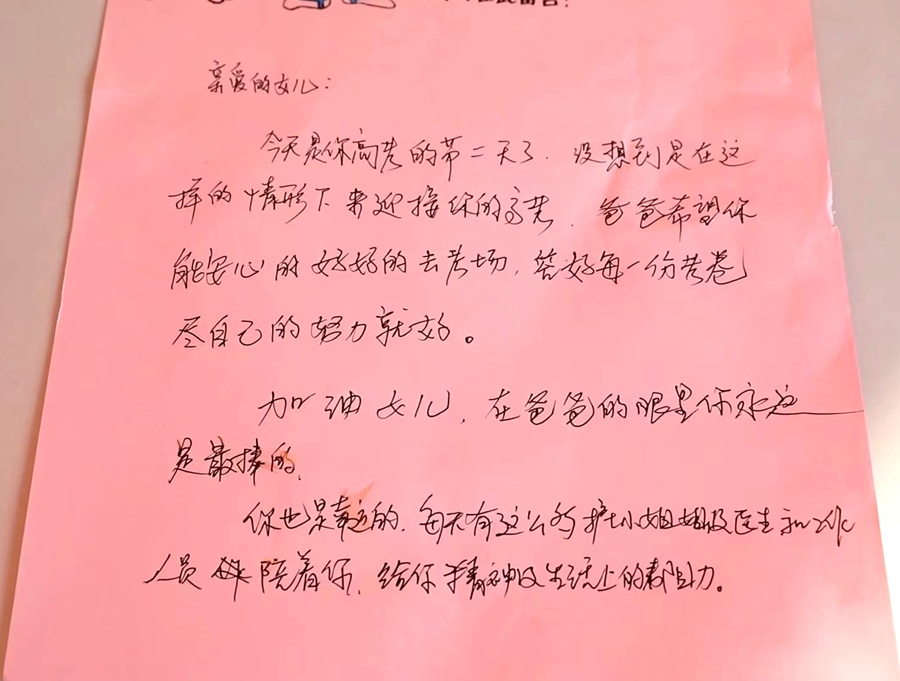 亲爱的女儿：
今天是你高考的第二天了．没想到是在这
样的情形下来迎接你的高考．爸爸希望你
能安心的好好的去考场，答好每一份考卷
尽自己的努力就好。
加油女儿，在爸爸的眼里你永远
是最棒的．
你也是幸运的．每天有这么多护士小姐姐及医生和工作
人员 陪着你．给你精神及生活上的帮助力。